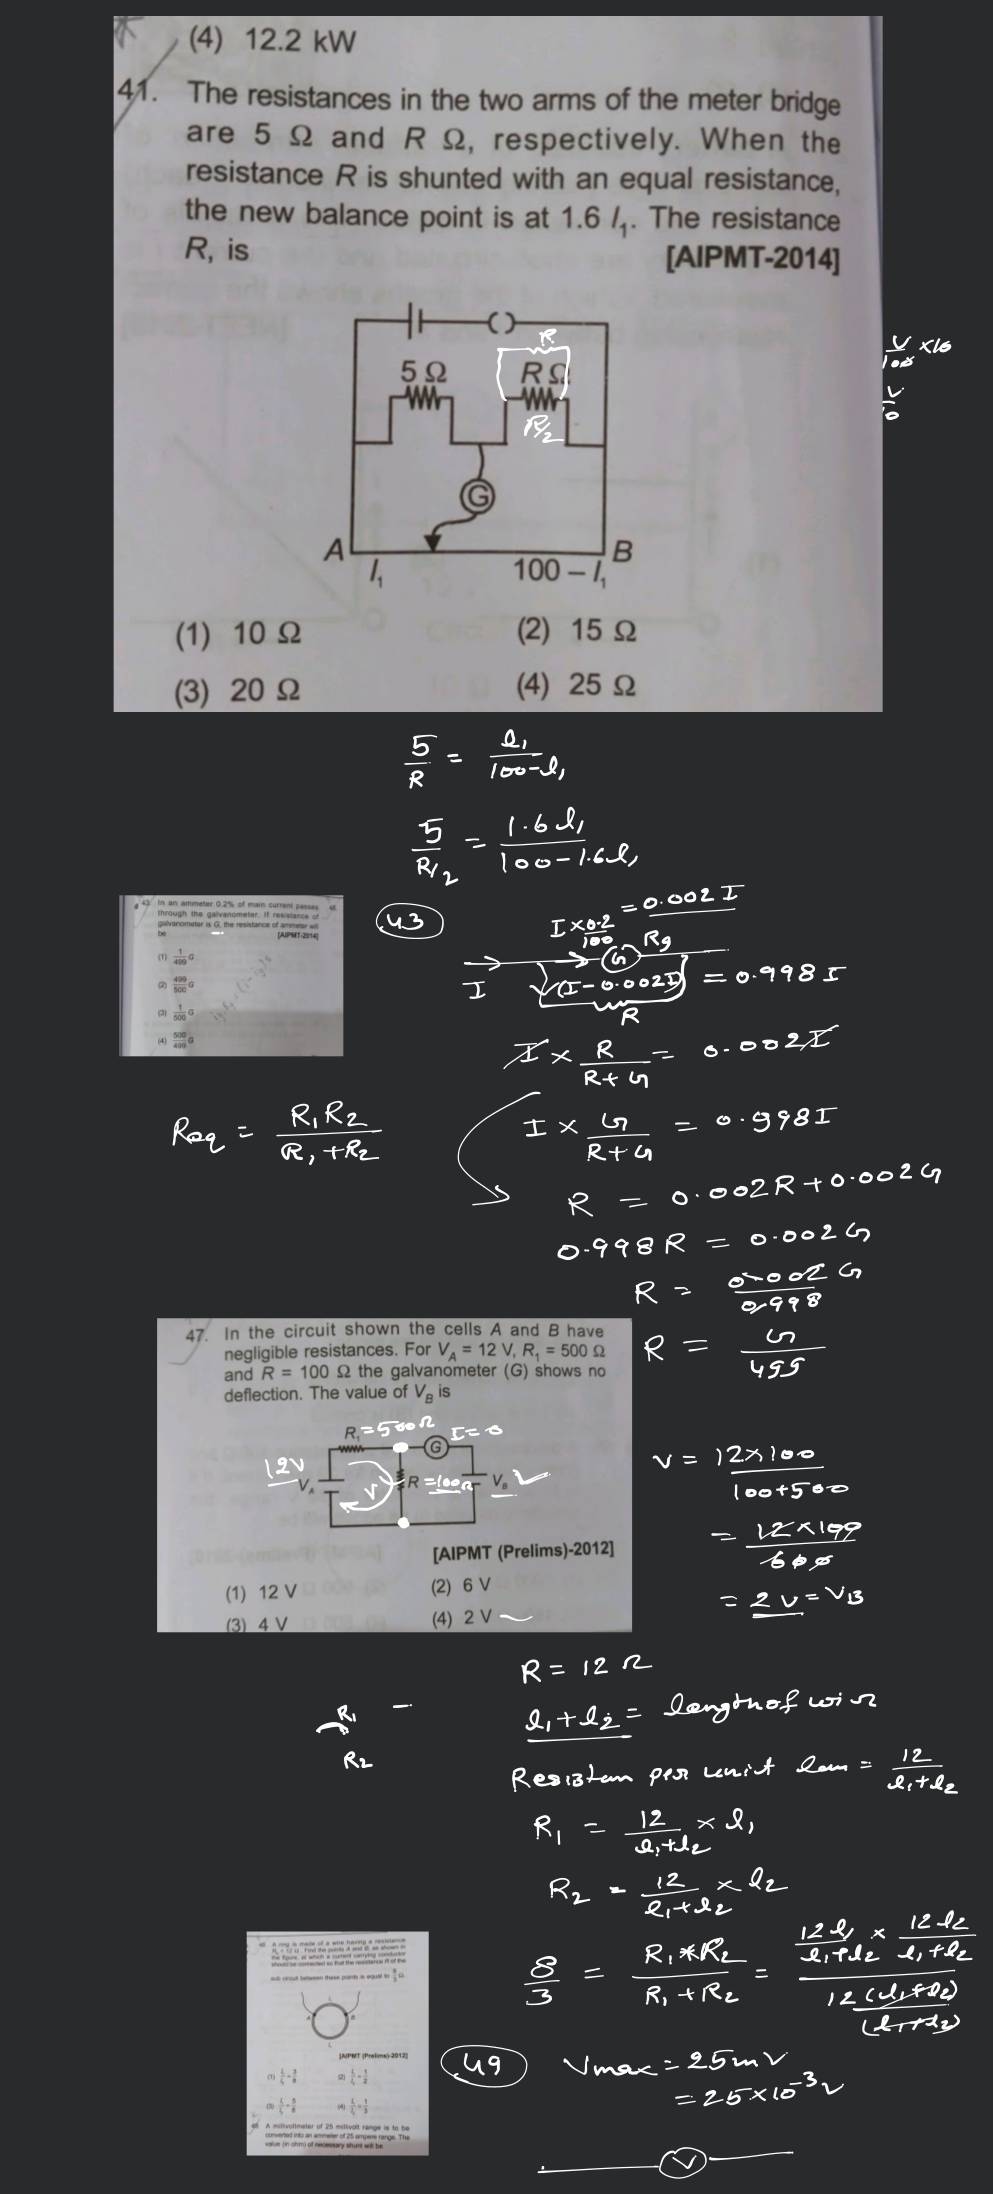 (4) 12.2 kW
41. The resistances in the two arms of the meter bridge
are 5 Ω and R Ω, respectively. When the
resistance R is shunted with an equal resistance,
the new balance point is at 1.6 l₁. The resistance
R, is [AIPMT-2014]
R
5 Ω R Ω
R/2
G
A B
l₁ 100 – l₁
(1) 10 Ω (2) 15 Ω
(3) 20 Ω (4) 25 Ω
V/100 ×10
V/10
5/R = l₁/100-l₁
5/R/2 = 1.6l₁/100-1.6l₁
43. In an ammeter 0.2% of main current passes
through the galvanometer. If resistance of
galvanometer is G, the resistance of ammeter will
be [AIPMT-2014]
(1) 1/499 G
(2) 499/500 G
(3) 1/500 G
(4) 500/499 G
43
I×0.2/100 = 0.002 I
G Rg
I (I-0.002I) = 0.998 I
R
I × R/R+G = 0.002I
I × G/R+G = 0.998I
Req = R₁R₂/R₁+R₂
R = 0.002R+0.002G
0.998R = 0.002G
R = 0.002 G/0.998
R = G/499
47. In the circuit shown the cells A and B have
negligible resistances. For V_A = 12 V, R₁ = 500 Ω
and R = 100 Ω the galvanometer (G) shows no
deflection. The value of V_B is
R₁=500Ω I=0
G
12V
V_A V R=100Ω V_B
[AIPMT (Prelims)-2012]
(1) 12 V (2) 6 V
(3) 4 V (4) 2 V
V = 12×100/100+500
= 12×100/600
= 2V = V_B
R = 12 Ω
l₁+l₂ = length of wire
R₁ –
R₂
Resistan per unit len = 12/l₁+l₂
R₁ = 12/l₁+l₂ × l₁
R₂ = 12/l₁+l₂ × l₂
8/3 = R₁×R₂/R₁+R₂ = 12l₁/l₁+l₂ × 12l₂/l₁+l₂ / 12(l₁+l₂)/(l₁+l₂)
A ring is made of a wire having a resistance
R₀ = 12 Ω. Find the points A and B, as shown in
the figure, at which a current carrying conductor
should be connected so that the resistance R of the
sub circuit between these points is equal to 8/3 Ω.
A B
[AIPMT (Prelims)-2012]
A millivoltmeter of 25 millivolt range is to be
converted into an ammeter of 25 ampere range. The
value (in ohm) of necessary shunt will be
49
Vmax = 25mV
= 25×10⁻³V
V